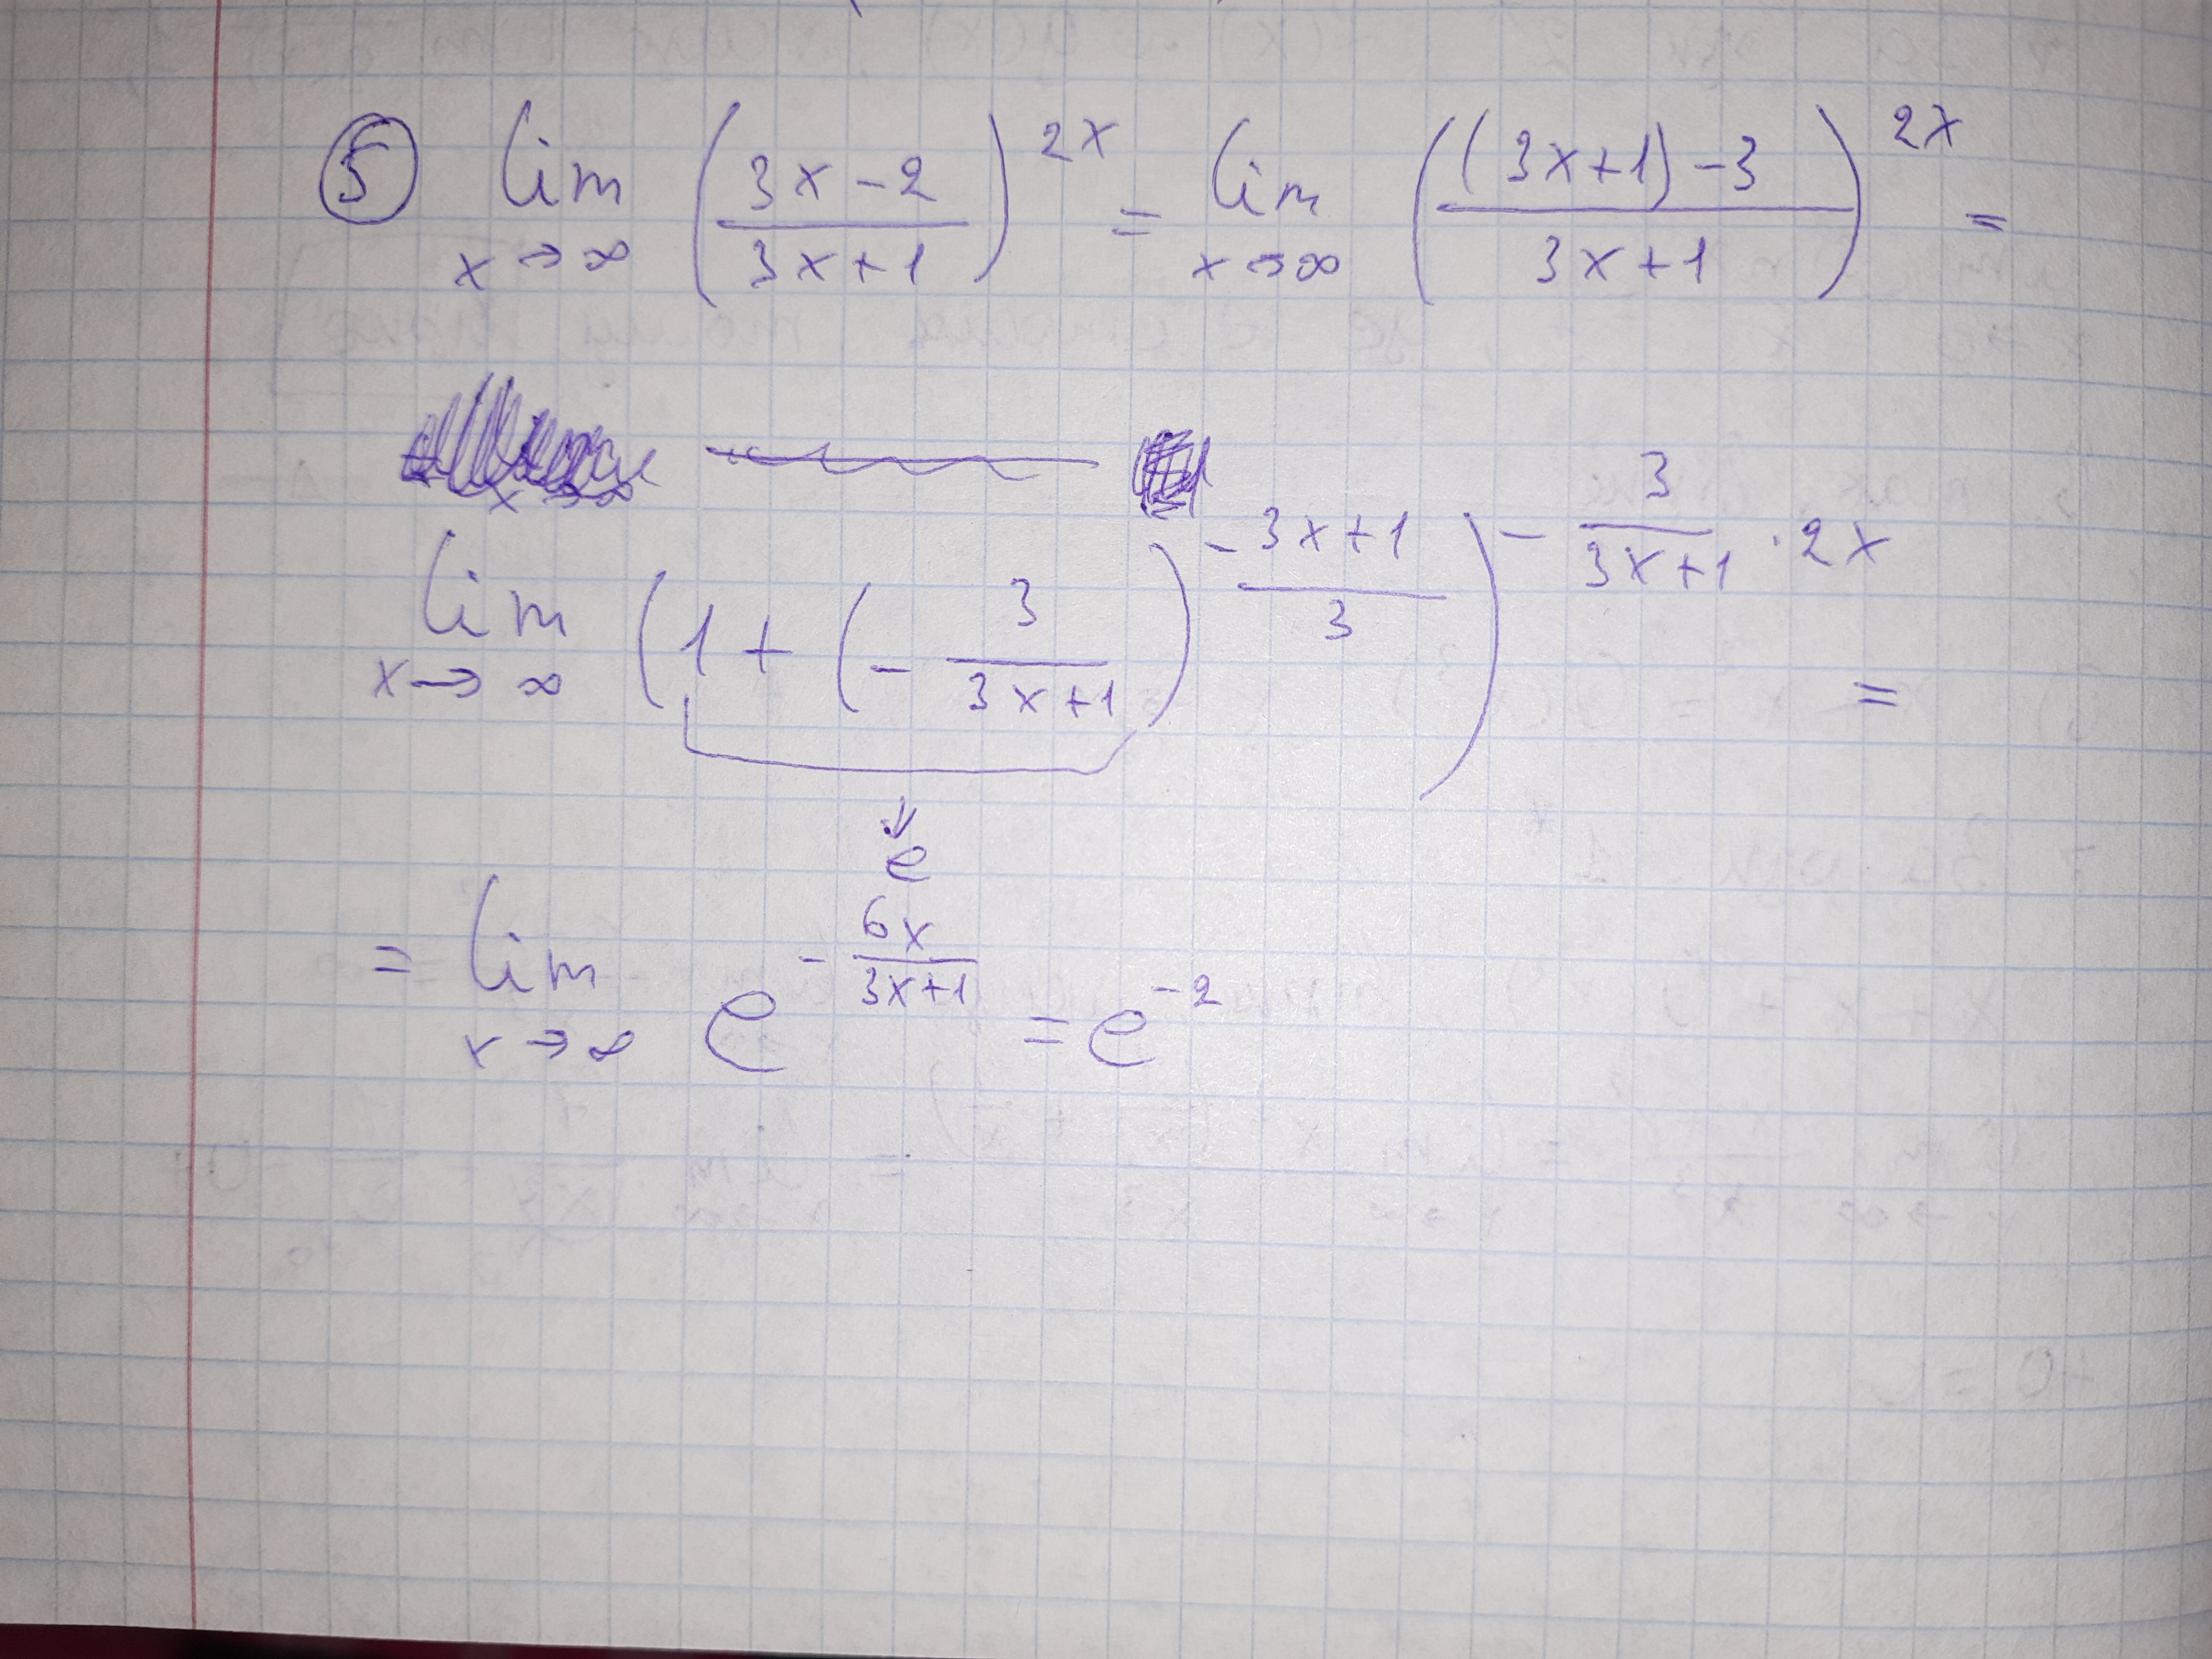 ⑤ lim x→∞ ((3x-2)/(3x+1))^(2x) = lim x→∞ (((3x+1)-3)/(3x+1))^(2x) =
lim x→∞ (1 + (- 3/(3x+1))^(- (3x+1)/3))^(- 3/(3x+1) · 2x) =
↓ e
= lim x→∞ e^(- 6x/(3x+1)) = e^(-2)